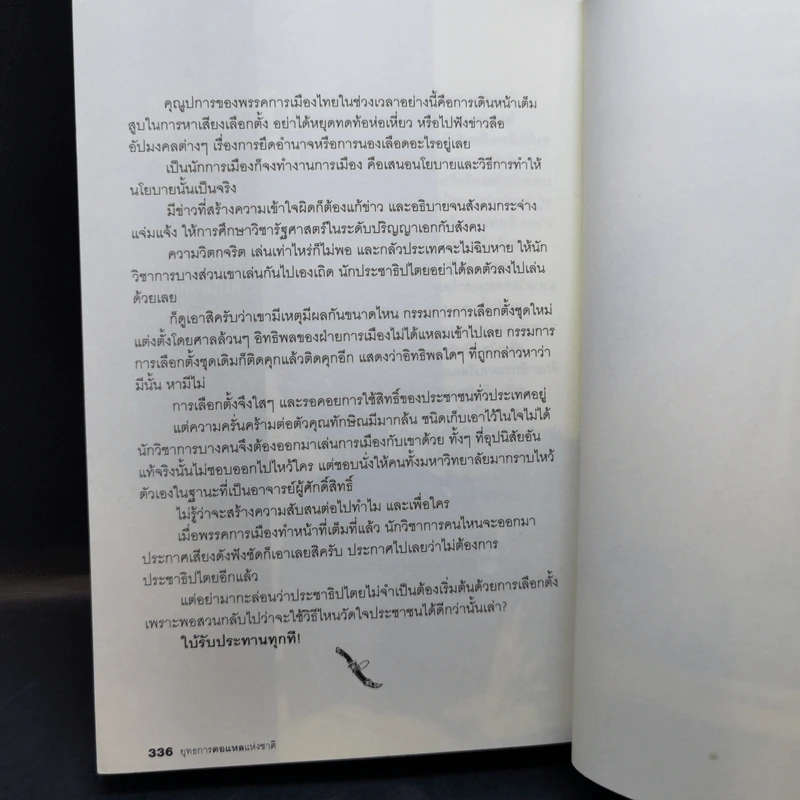 คุณูปการของพรรคการเมืองไทยในช่วงเวลาอย่างนี้คือการเดินหน้าเต็ม
สูบในการหาเสียงเลือกตั้ง อย่าได้หยุดทดท้อห่อเหี่ยว หรือไปฟังข่าวลือ
อัปมงคลต่างๆ เรื่องการยึดอำนาจหรือการนองเลือดอะไรอยู่เลย
เป็นนักการเมืองก็จงทำงานการเมือง คือเสนอนโยบายและวิธีการทำให้
นโยบายนั้นเป็นจริง
มีข่าวที่สร้างความเข้าใจผิดก็ต้องแก้ข่าว และอธิบายจนสังคมกระจ่าง
แจ่มแจ้ง ให้การศึกษาวิชารัฐศาสตร์ในระดับปริญญาเอกกับสังคม
ความวิตกจริต เล่นเท่าไหร่ก็ไม่พอ และกลัวประเทศจะไม่ฉิบหาย ให้นัก
วิชาการบางส่วนเขาเล่นกันไปเองเถิด นักประชาธิปไตยอย่าได้ลดตัวลงไปเล่น
ด้วยเลย
ก็ดูเอาสิครับว่าเขามีเหตุมีผลกันขนาดไหน กรรมการการเลือกตั้งชุดใหม่
แต่งตั้งโดยศาลล้วนๆ อิทธิพลของฝ่ายการเมืองไม่ได้แหลมเข้าไปเลย กรรมการ
การเลือกตั้งชุดเดิมก็ติดคุกแล้วติดคุกอีก แสดงว่าอิทธิพลใดๆ ที่ถูกกล่าวหาว่า
มีนั้น หามีไม่
การเลือกตั้งจึงใสๆ และรอคอยการใช้สิทธิ์ของประชาชนทั่วประเทศอยู่
แต่ความครั่นคร้ามต่อตัวคุณทักษิณมีมากล้น ชนิดเก็บเอาไว้ในใจไม่ได้
นักวิชาการบางคนจึงต้องออกมาเล่นการเมืองกับเขาด้วย ทั้งๆ ที่อุปนิสัยอัน
แท้จริงนั้นไม่ชอบออกไปไหว้ใคร แต่ชอบนั่งให้คนทั้งมหาวิทยาลัยมากราบไหว้
ตัวเองในฐานะที่เป็นอาจารย์ผู้ศักดิ์สิทธิ์
ไม่รู้ว่าจะสร้างความสับสนต่อไปทำไม และเพื่อใคร
เมื่อพรรคการเมืองทำหน้าที่เต็มที่แล้ว นักวิชาการคนไหนจะออกมา
ประกาศเสียงดังฟังชัดก็เอาเลยสิครับ ประกาศไปเลยว่าไม่ต้องการ
ประชาธิปไตยอีกแล้ว
แต่อย่ามากะล่อนว่าประชาธิปไตยไม่จำเป็นต้องเริ่มต้นด้วยการเลือกตั้ง
เพราะพอสวนกลับไปว่าจะใช้วิธีไหนวัดใจประชาชนได้ดีกว่านั้นเล่า?
ใบ้รับประทานทุกที!
336 ยุทธการตอแหลแห่งชาติ